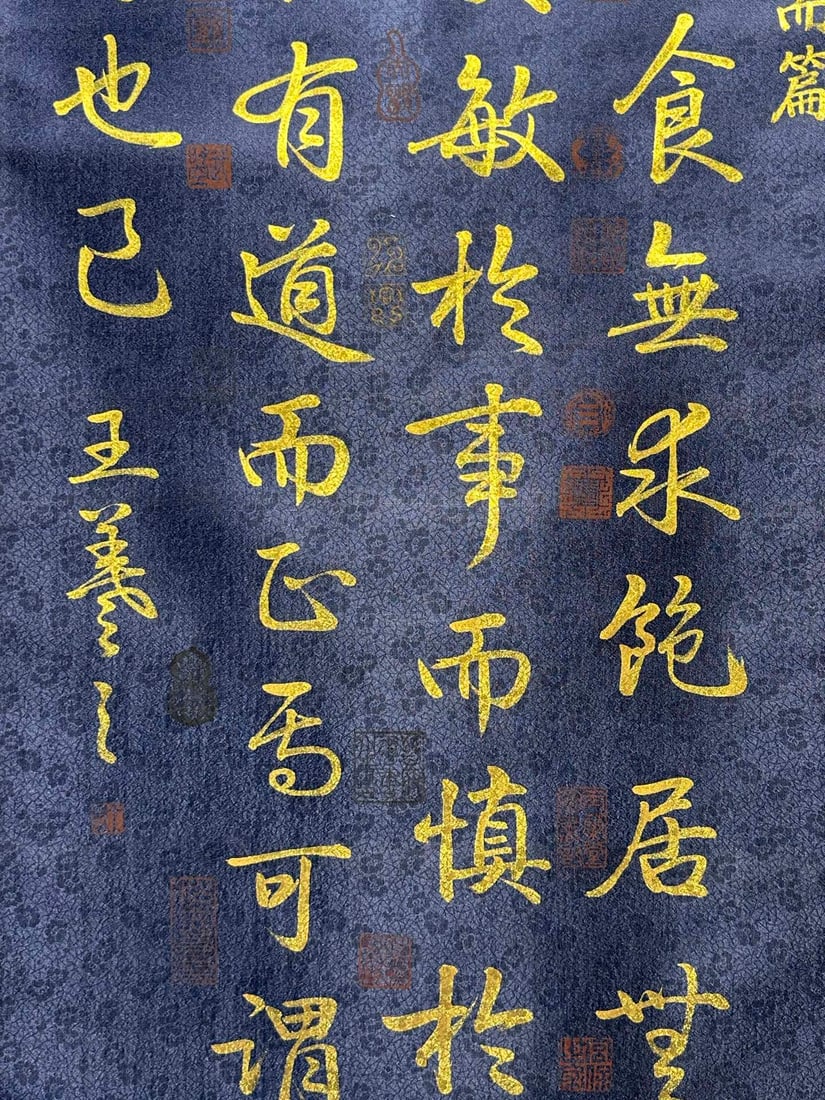 而篇
食無求飽居無
敏於事而慎於
有道而正焉可謂
也已
王羲之